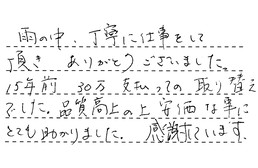 雨の中、丁寧に仕事をして
頂き ありがとうございました。
15年前 30万支払っての取り替え
でした。品質向上の上、安価な事に
とても助かりました。 感謝しています。